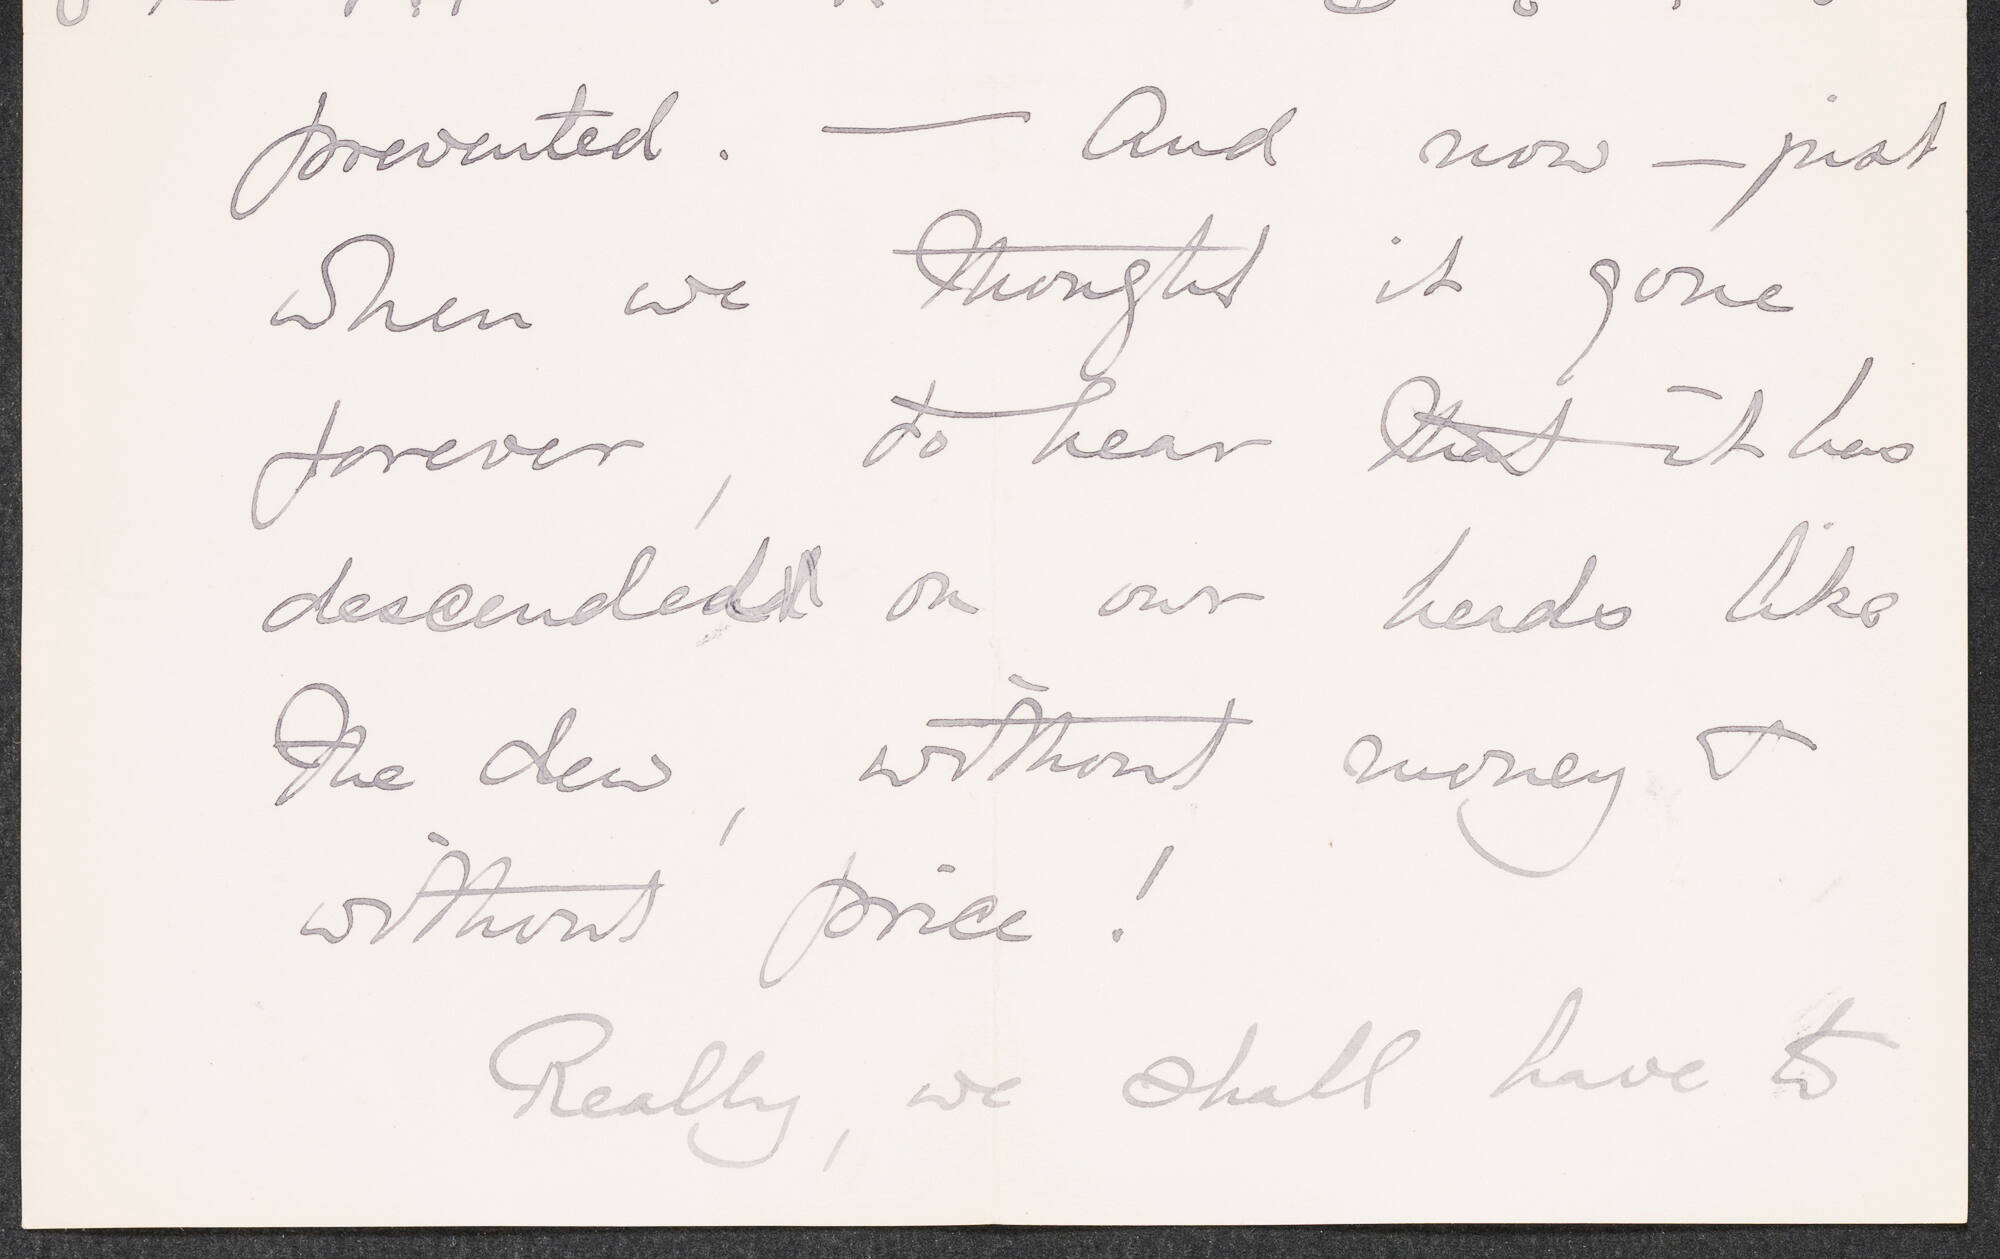 prevented. — And now — just
when we thought it gone
forever, to hear that it has
descended on our heads like
the dew, without money &
without price!
Really, we shall have to